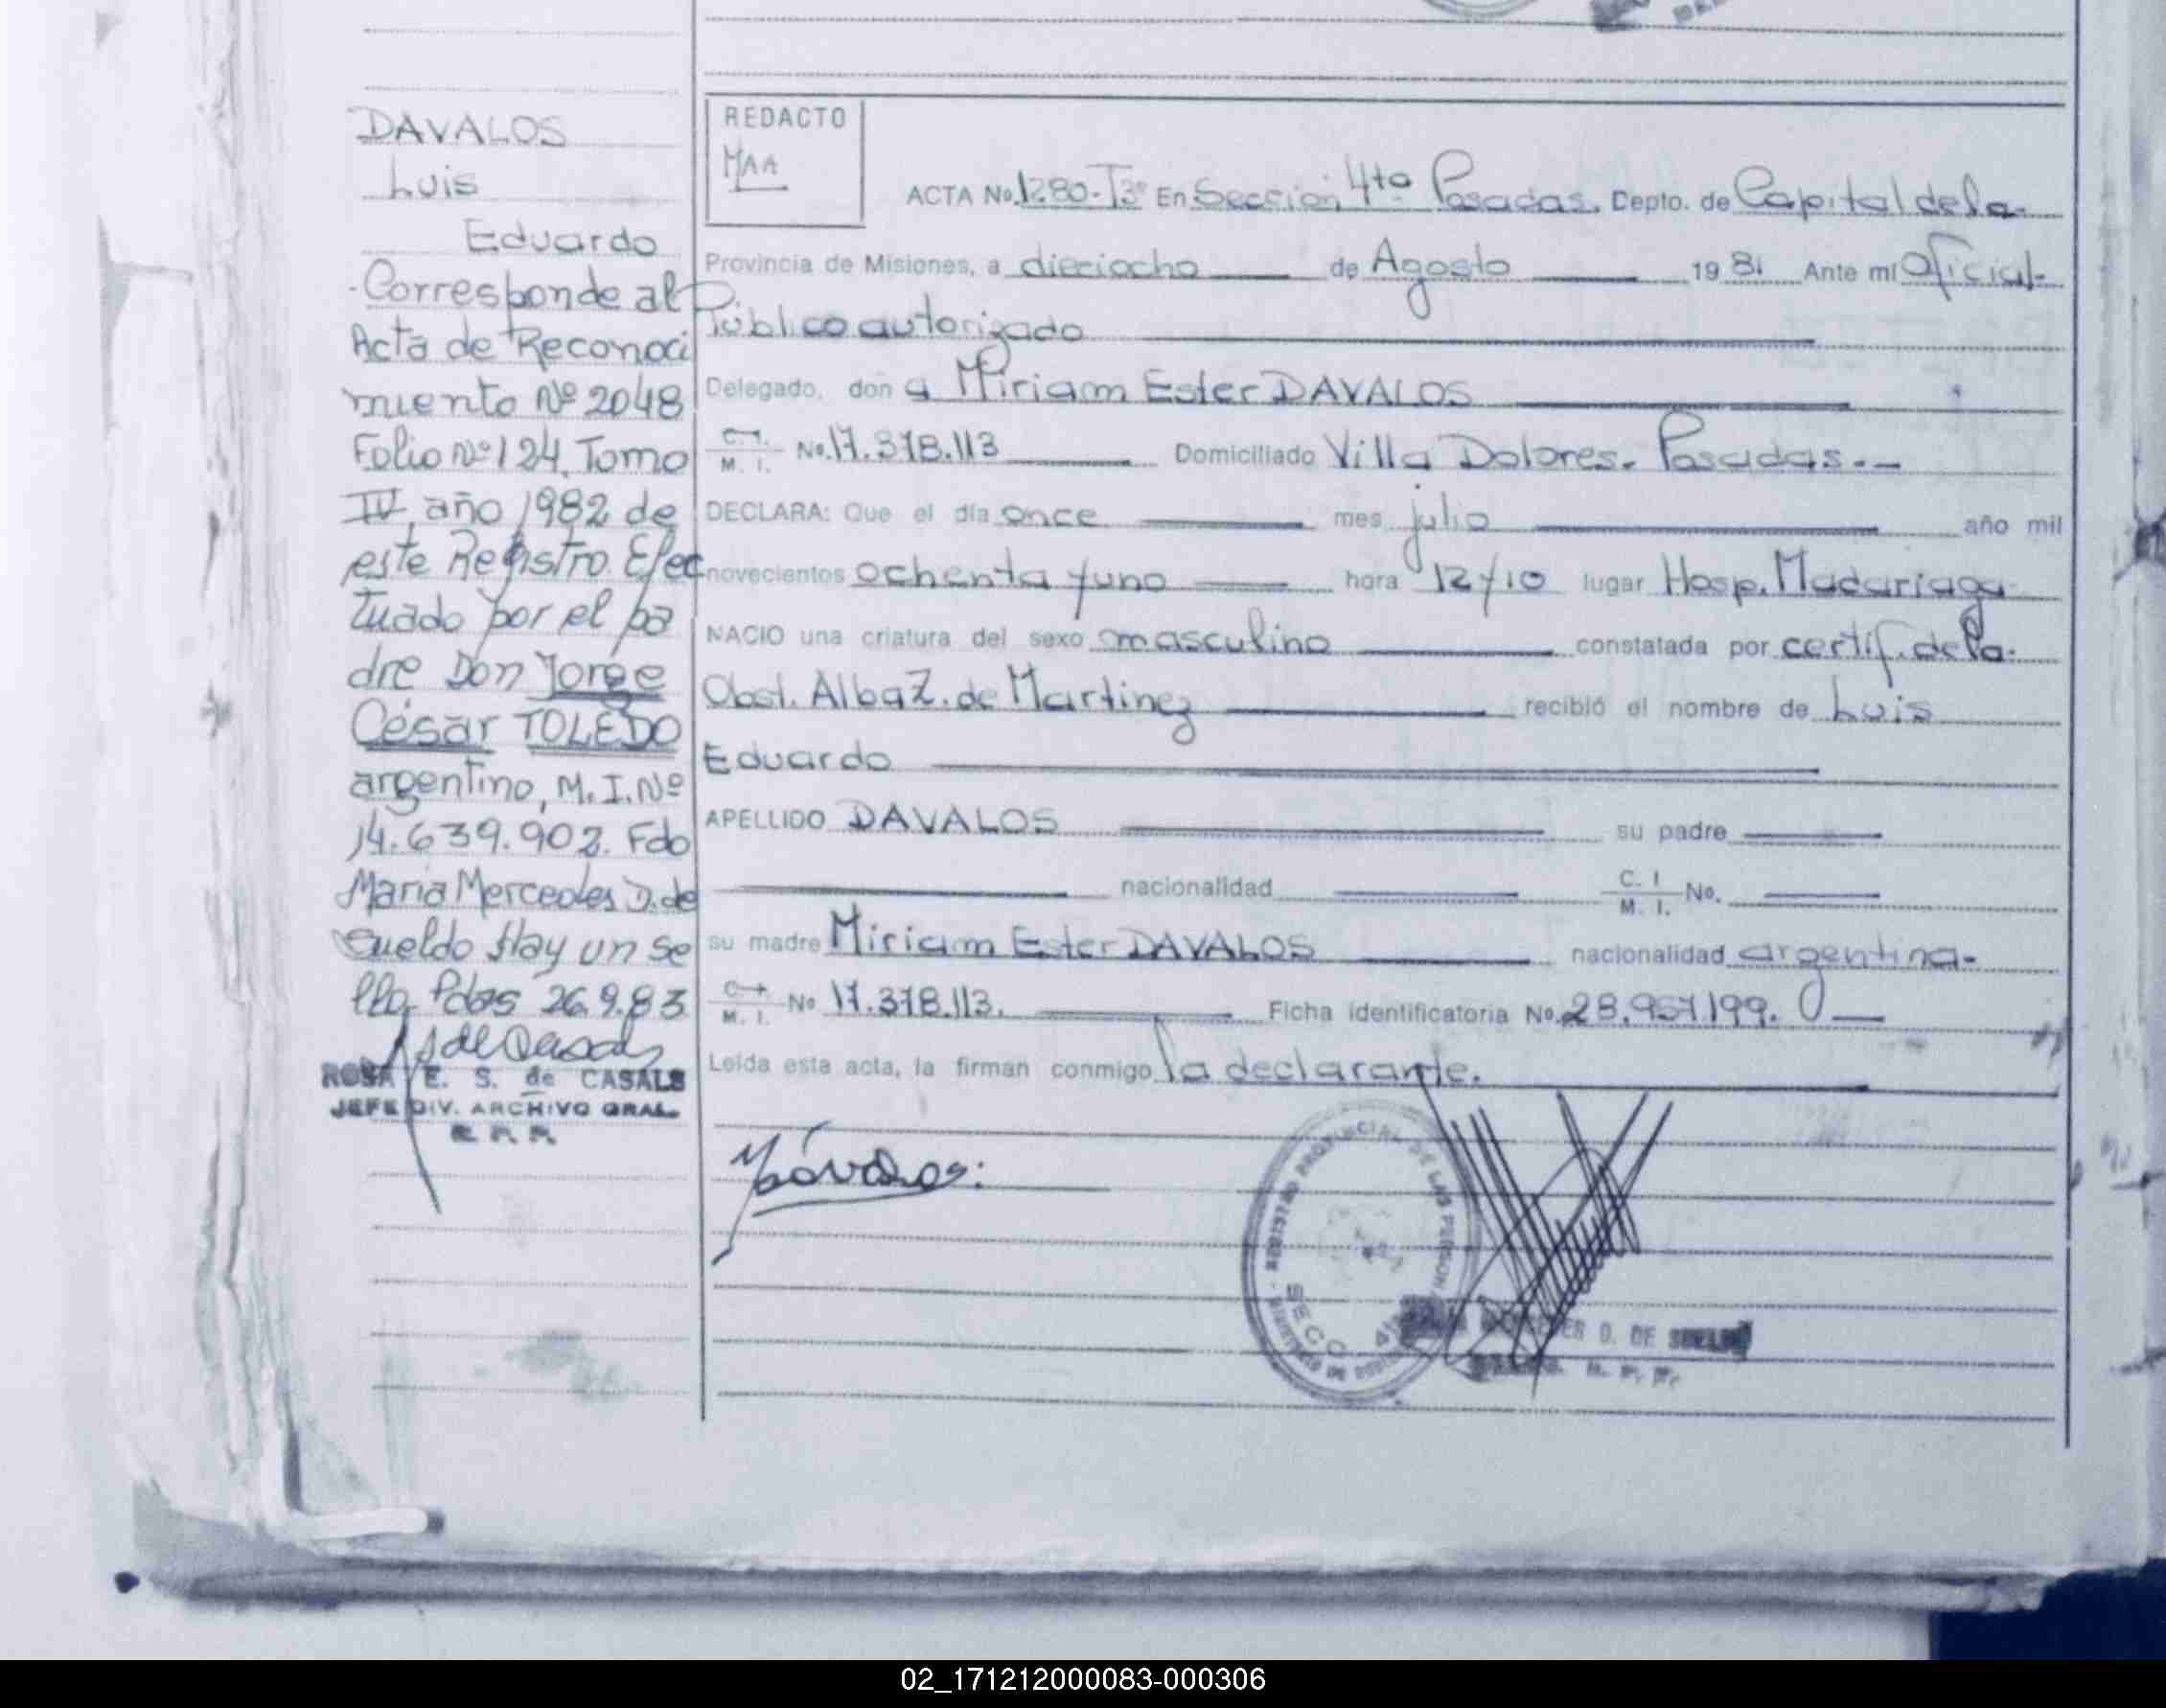 DAVALOS
Luis
Eduardo
-Corresponde al
Acta de Reconoci
miento Nº 2048
Folio Nº 124. Tomo
IV, año 1982 de
este Registro. Efec
tuado por el pa
dre Don Jorge
César TOLEDO
argentino, M.I. Nº
14.639.902. Fdo
Maria Mercedes D. de
Sueldo Hay un se
llo. Pdas 26.9.83
ROSA E. S. de CASALS
JEFE DIV. ARCHIVO GRAL.
R. P. P.
REDACTO
MAA
ACTA No. 1280-T3º En Sección 4ta Posadas. Depto. de Capital de la-
Provincia de Misiones, a dieciocho de Agosto 1981 Ante mi Oficial-
Público autorizado
Delegado, don a Miriam Ester DAVALOS
C.I. M. I. No. 17.378.113 Domiciliado Villa Dolores. Posadas.-
DECLARA: Que el día once mes julio año mil
novecientos ochenta y uno hora 12 y 10 lugar Hosp. Madariaga
NACIO una criatura del sexo masculino constatada por certif. de la-
Obst. Alba Z. de Martinez recibió el nombre de Luis
Eduardo
APELLIDO DAVALOS su padre
nacionalidad C. I M. I. No.
su madre Miriam Ester DAVALOS nacionalidad argentina-
C.I. M. I. No 17.378.113. Ficha identificatoria No. 28.957.199.
Leída esta acta, la firman conmigo la declarante.
REGISTRO PROVINCIAL DE LAS PERSONAS
SECC. 4
D. DE SUELDO
R. P. P.
02_171212000083-000306